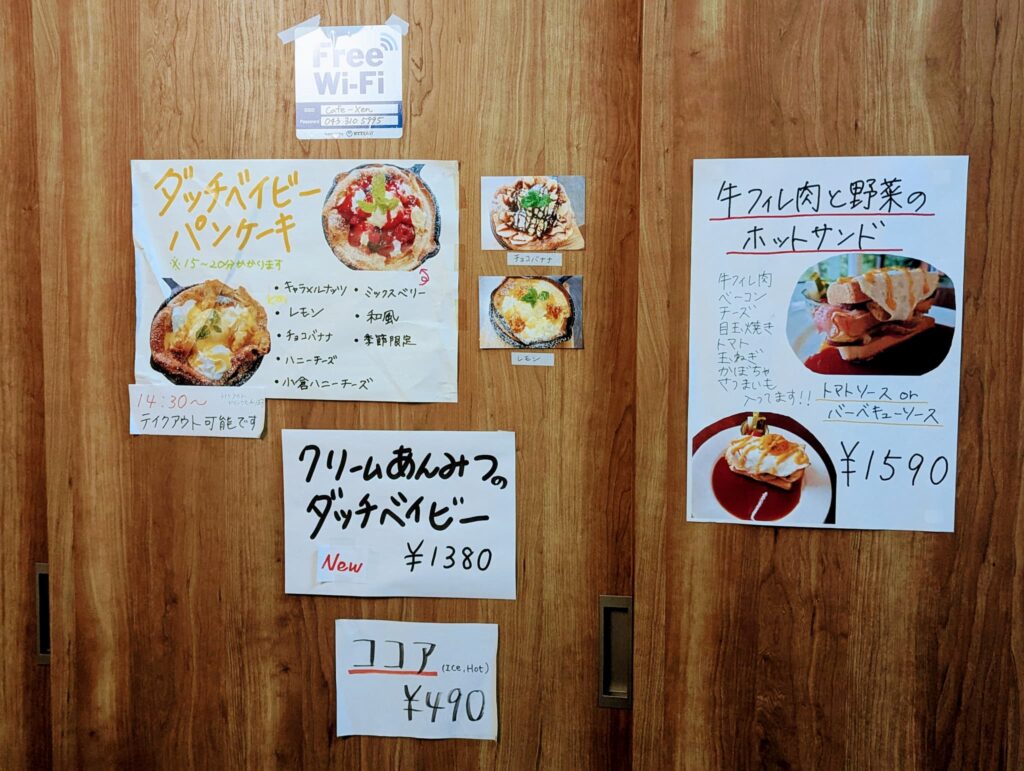 Free
Wi-Fi
SSID Cafe-Xen
Password 043 310 5995
ダッチベイビー
パンケーキ
※15〜20分かかります
・キャラメルナッツ
・レモン
・チョコバナナ
・ハニーチーズ
・小倉ハニーチーズ
・ミックスベリー
・和風
・季節限定
14:30〜
テイクアウト可能です
チョコバナナ
レモン
クリームあんみつの
ダッチベイビー
New ¥1380
ココア (Ice, Hot)
¥490
牛フィレ肉と野菜の
ホットサンド
牛フィレ肉
ベーコン
チーズ
目玉焼き
トマト
玉ねぎ
かぼちゃ
さつまいも
入ってます!!
トマトソース or
バーベキューソース
¥1590